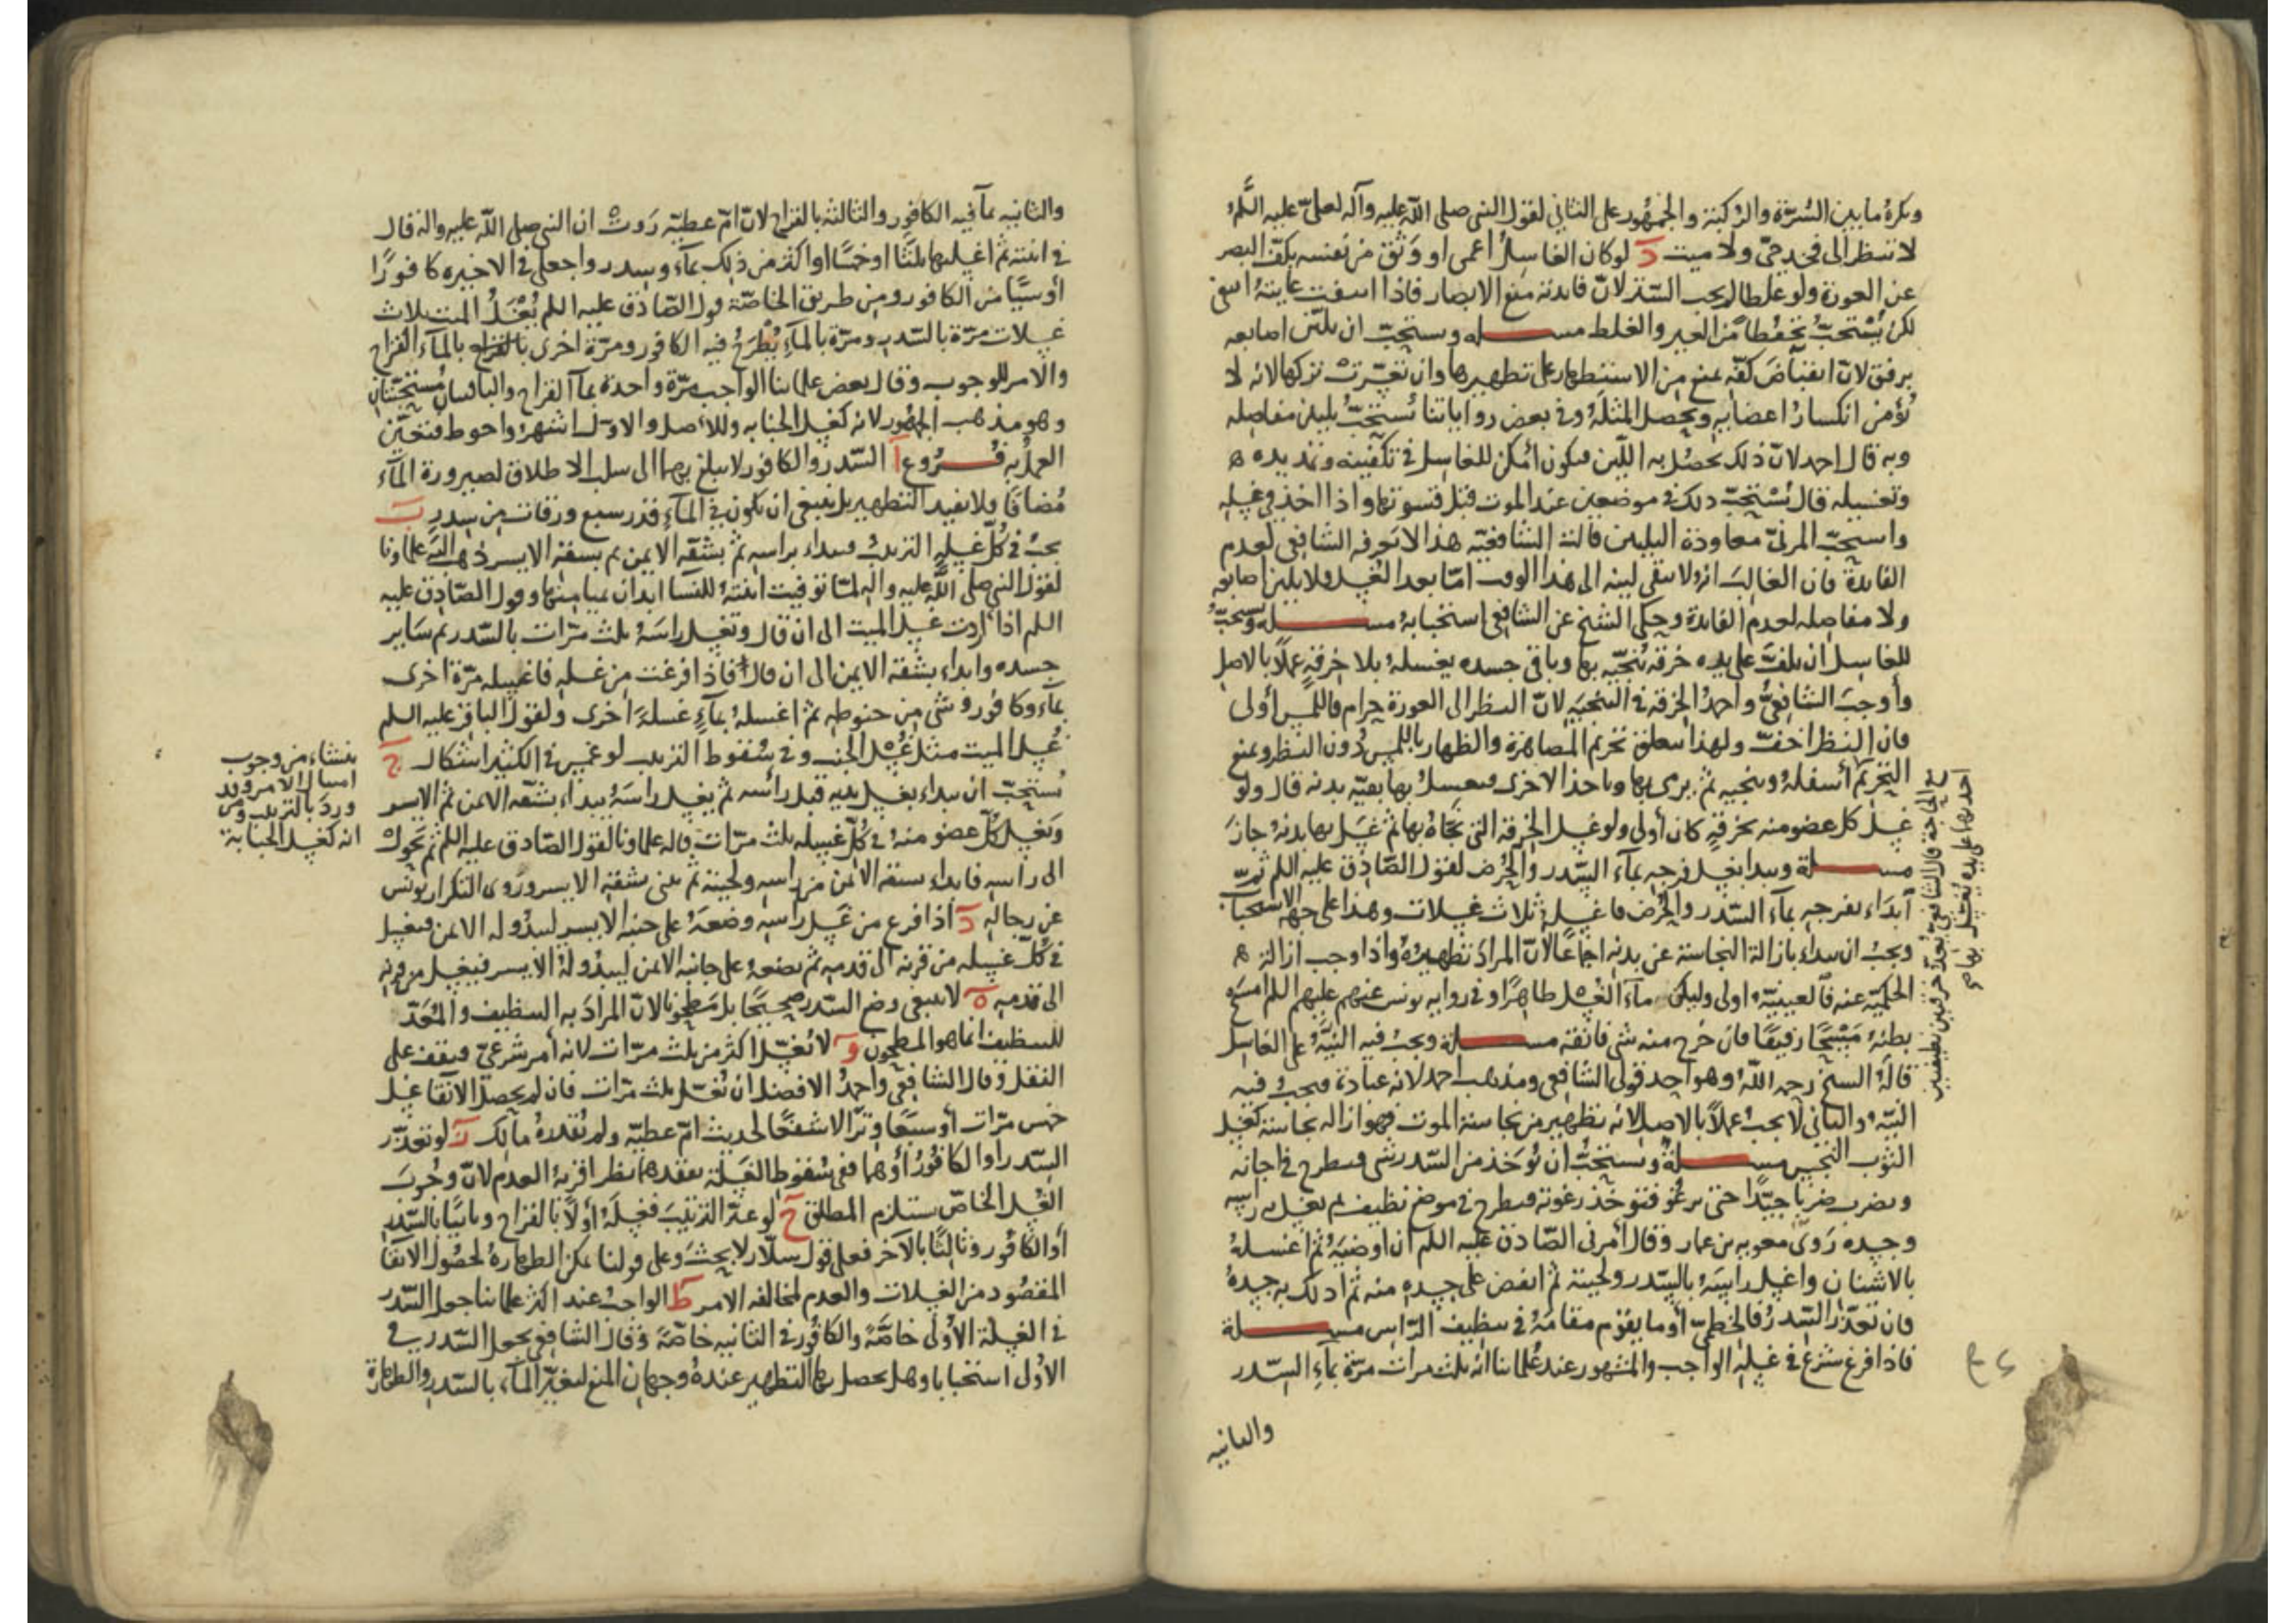 ويكره ما بين السُرّة والرُكبة والجمهور على الثاني لقول النبي صلى اللّه عليه وآله لعلىّ عليه السَّلم
لا تنظر الى فخذ حىّ ولا ميت دَ لو كان الغاسلُ اعمى او وَثق من نفسه بكفّ البصر
عن العورة ولو غلطا لم يجب السَّتر لانّ فايدته منع الابصار فاذا انتفت غايتهُ انتفى
لكن يُسْتحبّ تحفّظاً من الغير والغلط مسـله ويستحبّ ان يليّن اصابعه
برفق لانّ انقباضَ كفّه يمنع من الاستظهار على تطهيرها وان تعسّرت تركها لانه لا
نُؤمن انكسارُ اعضايه ويحصل المثلَة وفي بعض رواياتنا يُستحَبُّ تليين مفاصله
وبه قال احمد لانّ ذلك يحصُل به اللّين فيكون أمكن للغاسل في تكفينه وتمديده
وتغسيله قال يُسْتحبّ ذلك في موضعين عند الموت قبل قسوتها واذا اخذ في غسله
واستحبّ المزنىّ معاودة التليين قالت الشافعيّه هذا لا نَعرفه الشافعي لعدم
الفايدة فان الغالبَ انه لا يبقى لينه الى هذا الوقت امّا بعد الغُسل فلا يلين اصابعه
ولا مفاصله لعدم الفايدة وحكى الشيخ عن الشافعى استحبابهُ مسـلة ويُستحبّ
للغاسل ان يلفّ على يده خرقه يُنجّيه بها وباقى جسده يغسلهُ بلا خرقةٍ عملاً بالاصل
وأوجبَ الشافعيُّ واحمدُ الخرقه في التنجيَهِ لانّ النظر الى العورة حرام فاللّمس أولى
فان النظرَ اخفّ ولهذا يتعلق تحريم المصاهرة والظهار باللمس دُون النظر ويمنع
التحريم أسفلهُ وينجيه ثم يرمى بها وياخذ الاخرى فيغسلُ بها بقيّه بدنه قال ولو
غسل كل عضو منه بخرقةٍ كان أولى ولو غسل الخرقه التي نجّاهُ بها ثم غَسل بها بدنهُ جازَ
مسـلة ويبدا بغسل فرجه بمآء السِّدر والحُرض لقول الصّادق عليه السلم ثمّ
ابدَاء بفرجه بمآء السّدر والحُرُض فاغسلهُ ثلاث غسلات وهذا على جهه الاستحباب
ويجبُ ان يبداء بازالة النجاسة عن بدنه اجماعًا لانّ المرادَ تطهيرُهُ واذا وجب ازالة
الحكميّه عنه فالعينيّهُ اولى وليكن مآءَ الغُسل طاهرًا وفي روايه يونس عنهم عليهم السلم امسَح
بطنَهُ مَسْحًا رفيقًا فان خرج منه شى فانقه مسـلة ويجبُ فيه النيّةُ على الغاسل
قالهُ الشيخ رحمه اللّهُ وهو احد قولي الشافعي ومذهب احمد لانه عبادة فيجبُ فيه
النيّه والثاني لا يجبُ عملاً بالاصل لانه تطهير من نجاسة الموت فهو ازاله نجاسة كغسل
الثوب النجس مسـلةٌ ويستحبُّ ان يُوخذ من السّدر شى فيطرح في اجانه
ويضرب ضربا جيّدًا حتى يرغُو فتوخذ رغوته فيطرح في موضع نظيف ثم يغسل به راسه
وجسده رَوى معويه بن عمار وقال أمرني الصّادق عليه السلم ان اوضيَهُ ثم اغسلهُ
بالاشنان واغسل راسَهُ بالسِّدر ولحيته ثم افيض على جسده منه ثم ادلك به جسدهُ
فان تعذّر السّدرُ فالخطميّ أو ما يقوم مقامَهُ في تنظيف الرّاس مسـلة
فاذا فرغ شرَع في غسله الواجب والمشهور عند عُلمائنا انّه ثلث مرات مرّة بمآءِ السّدر
والثانيه
في الحاجة قال الشافعيّ يُعدّ خرقتين نظيفتين
احديهما على يده يُغسل بها
والثانيه بمآ فيه الكافور والثالثه بالقراح لانّ امّ عطيّه رَوت ان النبي صلى اللّه عليه واله قال
في ابنته ثم اغسليها ثلثًا او خمسًا او اكثر من ذلك بمآء وسدر واجعلى في الاخيره كافورًا
أو شيًا من الكافور ومن طريق الخاصّة قول الصّادق عليه السلم يُغْسَلُ الميت ثلاث
غسلات مرّة بالسّدر ومرّة بالمآءِ يُطْرَحُ فيه الكافور ومرّة اخرى بالقراح بالمآء القراح
والامر للوجوب وقال بعض علمائنا الواجب مرّة واحدة بمآ القراح والباقيتان مُستحبّتان
وهو مذهب الجمهور لانه كغسل الجنابه وللاصل والاوّل اشهرُ واحوط فتعيّن
العملُ به فُـرُوع آ السّدر والكافور لا يبلغ بهما الى سلب الاطلاق لصيرورة المآء
مُضافًا ولا يفيد التطهير بل ينبغى ان يكون في المآءِ قدر سبع ورقات من سدرٍ بَ
يجبُ في كُلّ غسله الترتيبُ فيبداء براسه ثم بشقّه الايمن ثم بشقّه الايسر ذهب اليه علماؤنا
لقول النبي صلى اللّه عليه واله لمّا توفيت ابنتهُ للنسا ابدان بميامنها وقول الصّادق عليه
السلم اذا اردت غسل الميت الى ان قال وتغسل راسَهُ ثلث مرّات بالسّدر ثم سَاير
جسده وابداء بشقه الايمن الى ان قال فاذا فرغت من غسله فاغسله مرّة اخرى
بمآء وكافور وشى من حنوطه ثم اغسلهُ بمآءٍ غسلةً اخرى ولقول الباقر عليه السلم
غُسل الميت مثل غُسل الجنب وفي سُقوط الترتيب لو غمس في الكثير اشكال جَ
يُستحبّ ان يبداء بغسل يديه قبل رأسه ثم يغسل راسَهُ يبداء بشقّه الايمن ثم الايسر
ويَغسل كلّ عضو منهُ في كُلّ غسله ثلث مرّات قاله علماؤنا لقول الصّادق عليه السلم ثم تحوّل
الى راسه فابداء بشقه الايمن من راسه ولحيته ثم تثنى بشقّه الايسر ورَوى التكرار يونس
عن رجاله دَ اذا فرغ من غسل راسه وضعَهُ على جنبه الايسر ليبدُو له الايمن فيغسل
في كلّ غسله من قرنه الى قدمه ثم يضعهُ على جانبه الايمن ليبدُو لهُ الايسر فيغسل من قرنه
الى قدمه هَ لا ينبغى وضع السّدر صحيحًا بل مَطحونًا لانّ المرادَ به التنظيف والمُعَدّ
للتنظيف انما هو المطحون وَ لا يُغسَّل اكثر من ثلث مرّات لانه أمر شرعيّ فيقف على
النقل وقال الشافعي واحمدُ الافضل ان يُغسَّل ثلث مرّات فان لم يحصل الانقا غسل
خمس مرّات أو سبعًا وترًا لا شفعًا لحديث امّ عطيّه ولم يُقدرهُ مالك زَ لو تعذّر
السّدر او الكافُورُ أو هما ففى سُقوط الغَسلة بفقدهما نظر اقربهُ العدم لانّ وجُوبَ
الغُسل الخاصّ يستلزم المطلق حَ لو غيّر الترتيبَ فغسلَهُ أولاً بالقراح وثانيًا بالسّدر
أو الكافُور وثالثًا بالآخر فعلى قول سلّار لا بحثَ وعلى قولنا يمكن الطهارهُ لحصُول الانقا
المقصُود من الغسلات والعدم لمخالفه الامر طَ الواجبُ عند اكثر علمائنا جعل السّدر
في الغسلة الاُولى خاصَّةً والكافور في الثانيه خاصّةً وقال الشافعى يجعل السّدر في
الاوّل استحبابا وهل يحصل بها التطهير عندهُ وجهان المنع لتغيّر المآء بالسّدر والطهارة
ينشاء من وجوب
امتثال الامر وقد
وردَ بالترتيب ومن
انه كغسل الجنابة